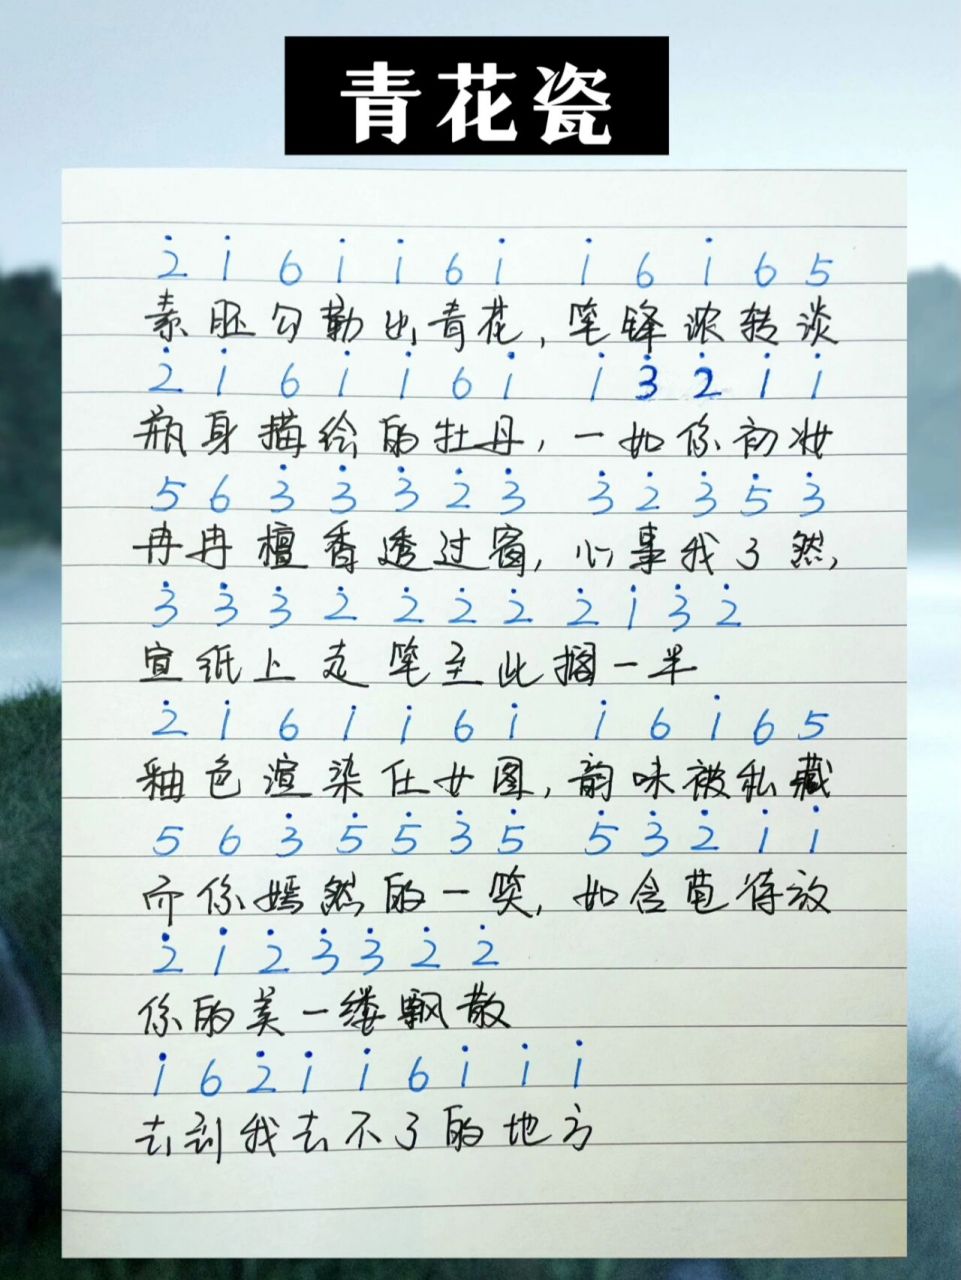 青花瓷
2̇ 1̇ 6 1̇ 1̇ 6 1̇ 1̇ 6 1̇ 6 5
素胚勾勒出青花,笔锋浓转淡
2̇ 1̇ 6 1̇ 1̇ 6 1̇ 1̇ 3̇ 2̇ 1̇ 1̇
瓶身描绘的牡丹,一如你初妆
5 6 3̇ 3̇ 3̇ 2̇ 3̇ 3̇ 2̇ 3̇ 5̇ 3̇
冉冉檀香透过窗,心事我了然,
3̇ 3̇ 3̇ 2̇ 2̇ 2̇ 2̇ 2̇ 1̇ 3̇ 2̇
宣纸上走笔至此搁一半
2̇ 1̇ 6 1̇ 1̇ 6 1̇ 1̇ 6 1̇ 6 5
釉色渲染仕女图,韵味被私藏
5 6 3̇ 5̇ 5̇ 3̇ 5̇ 5̇ 3̇ 2̇ 1̇ 1̇
而你嫣然的一笑,如含苞待放
2̇ 1̇ 2̇ 3̇ 3̇ 2̇ 2̇
你的美一缕飘散
1̇ 6 2̇ 1̇ 1̇ 6 1̇ 1̇ 1̇
去到我去不了的地方